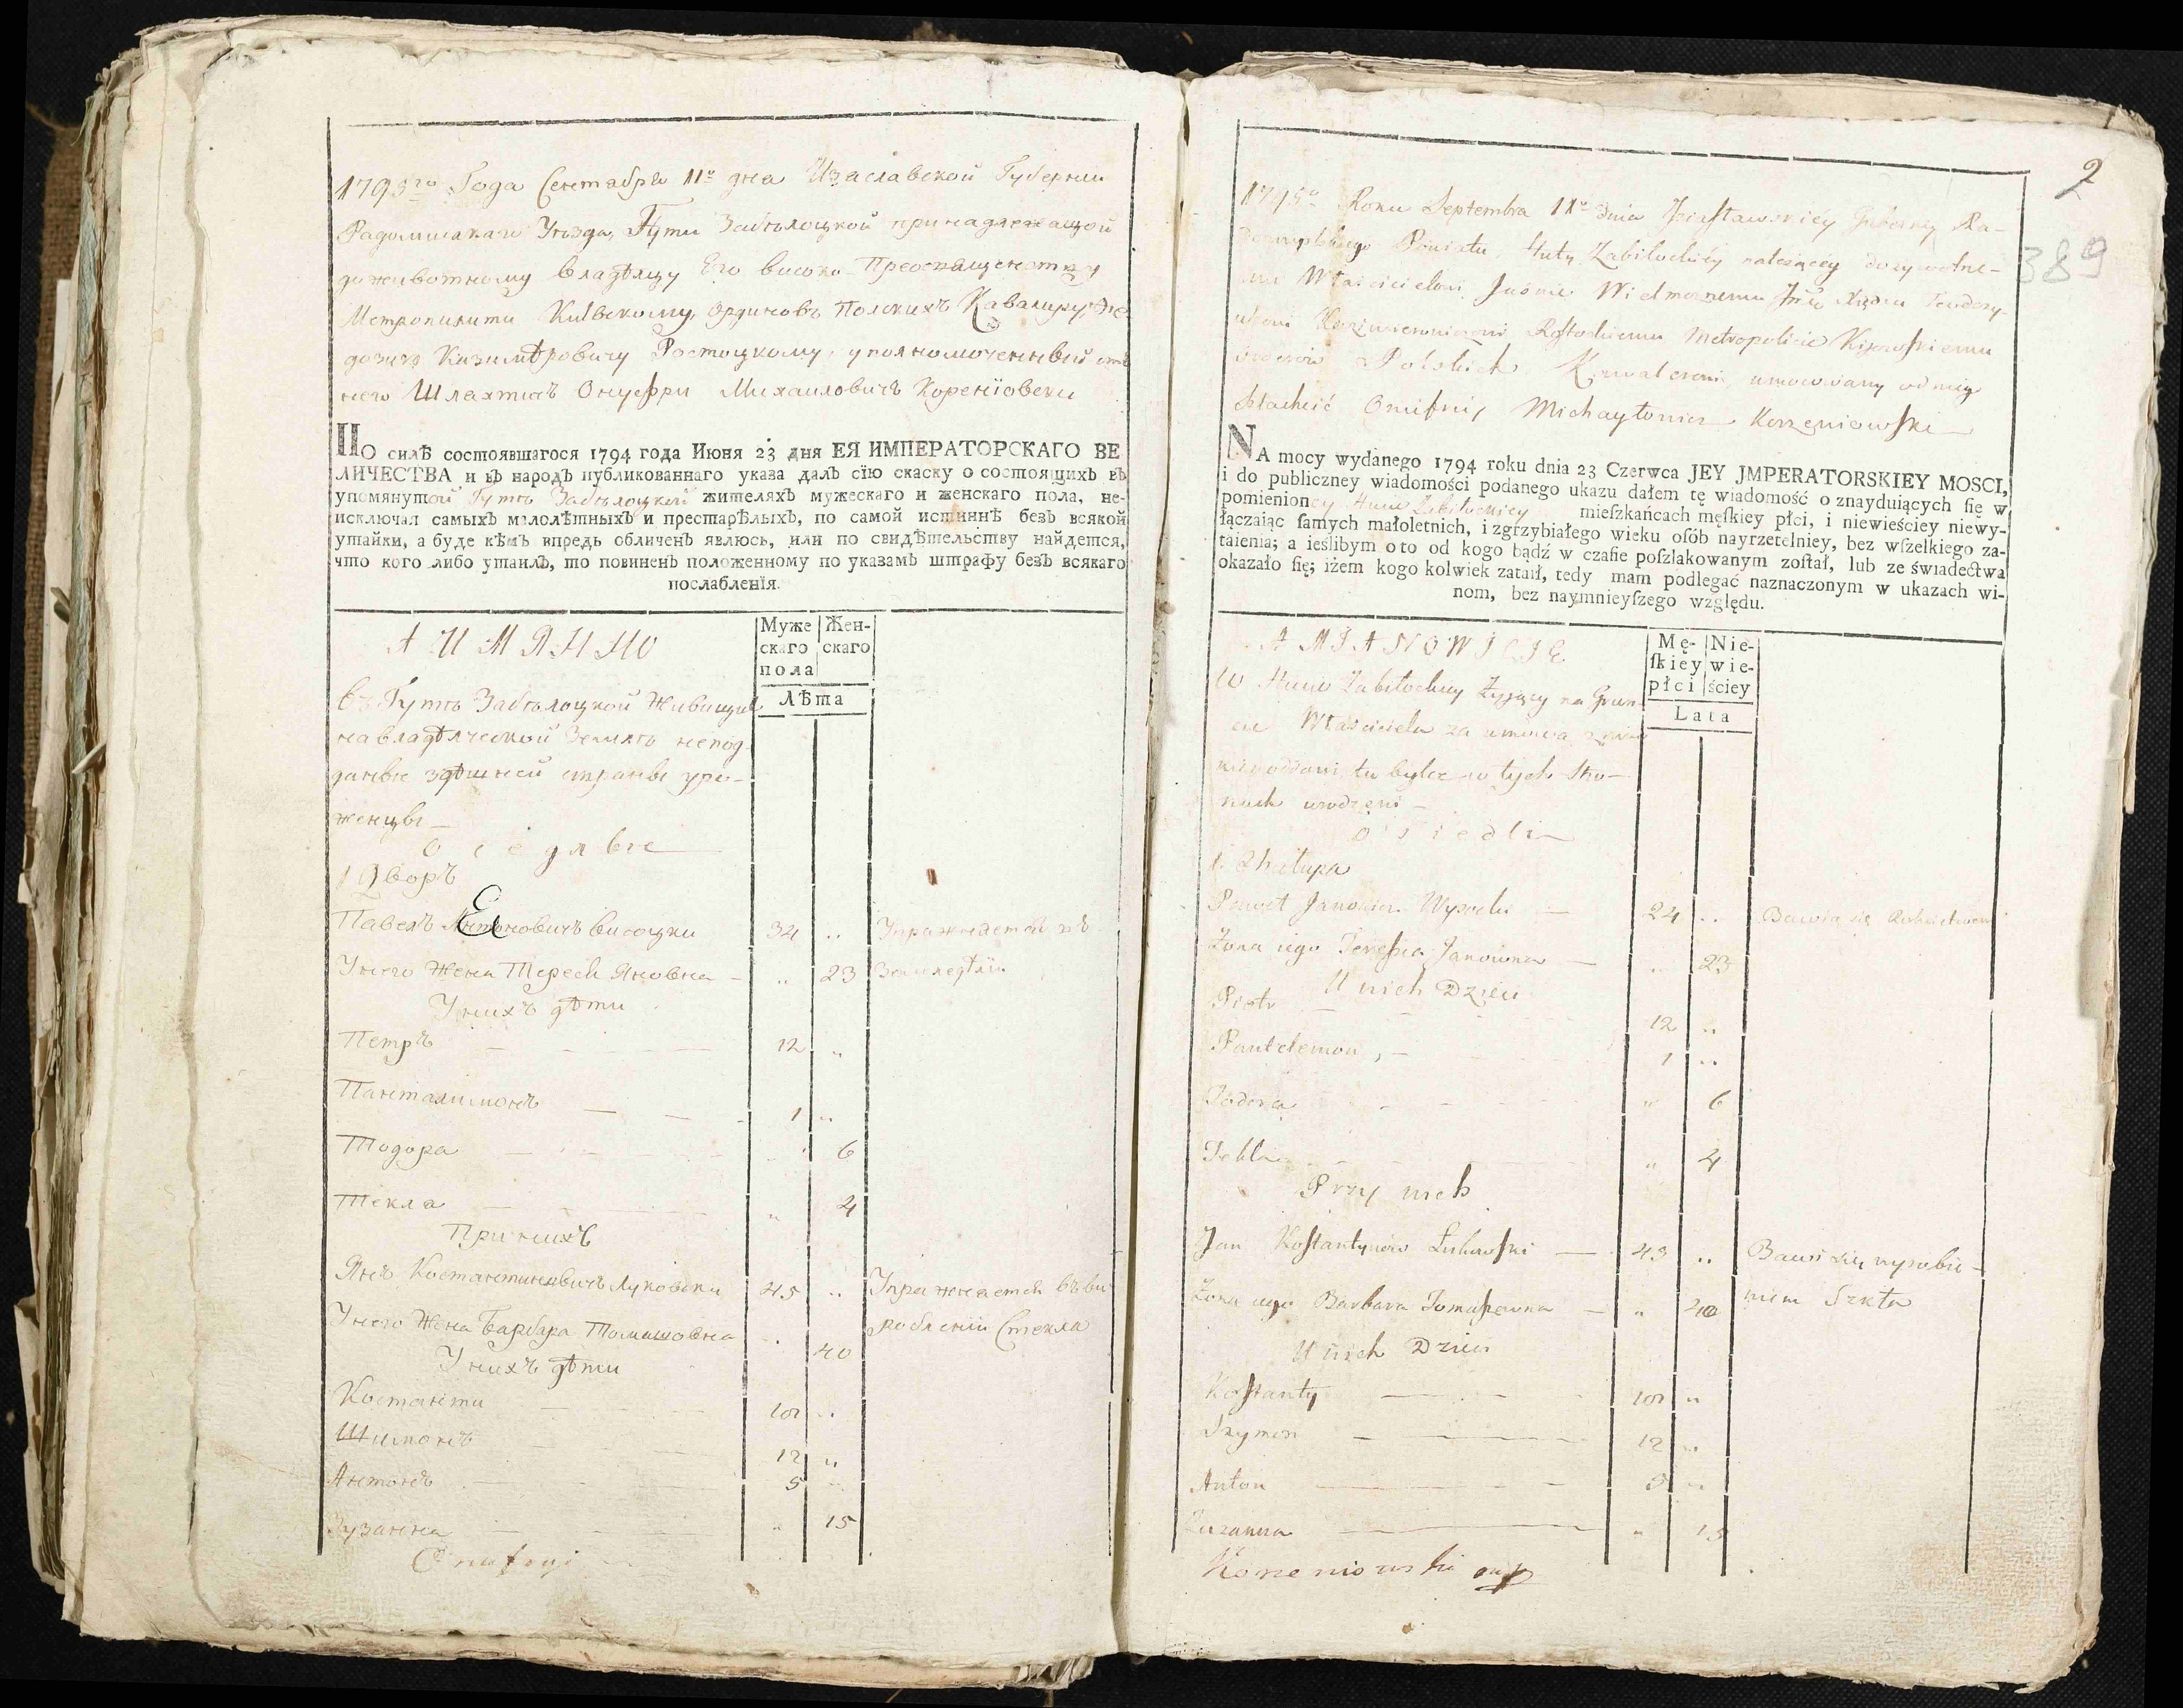 1795го Года Сентября 11о дна Изаславской Губернии
Радомислского Уезда, Гути Забѣлоцкой принадлежащой
доживотному владѣлцу Его високо Преосвященству
Митрополити Киевскому, Ординовъ Полскихъ Кавалиру Θе
дозию Казимѣровичу Ростоцкому, уполномоченный отъ
него Шляхтичъ Онуфри Михаиловичъ Коренїовски
ПО силѣ состоявшагося 1794 года Июня 23 дня ЕЯ ИМПЕРАТОРСКАГО ВЕ
ЛИЧЕСТВА и въ народъ публикованнаго указа далъ сїю скаску о состоящихъ въ
упомянутой Гутѣ Забѣлоцкой жителяхъ мужескаго и женскаго пола, не-
исключая самыхъ малолѣтныхъ и престарѣлыхъ, по самой истиннѣ безъ всякой
утайки, а буде кѣмъ впредь обличенъ явлюсь, или по свидѣтельству найдется,
что кого либо утаилъ, то повиненъ положенному по указамъ штрафу безъ всякаго
послабленїя.
А ИМЯННО
Муже Жен-
скаго скаго
пола
Лѣта
Въ Гутѣ Забѣлоцкой Живущие
на владѣлческой Землѣ непод-
данные здѣшней страны уро-
женцы
Осѣдлые
1 Дворъ
Павелъ Яновичъ Висоцки 34 ..
Упражняется въ
У него Жена Тереся Яновна .. 23
Земледѣлїи
У нихъ дѣти
Петръ 12 ..
Панталимонъ 1 ..
Тодора .. 6
Текла .. 4
При нихъ
Янъ Костантиновичъ Луковски 45 ..
Упражняется въ ви
У него Жена Барбара Томашовна .. 40
роблении Стекла
У нихъ дѣти
Костанти ..
Шимонъ 12 ..
Антонъ 5 ..
Зузанна .. 15
Onufryi
2
389
1795o Roku Septembra 11o Dnia Iziasławskiey Gubernij Ra-
domyslskiego Powiatu, Huty Zabiłockiey należącey dożywotne-
mu Właścicielowi Jaśnie Wielmożnemu Jmć Xiędzu Teodozy-
uszowi Kazimierowiczowi Rostockiemu Metropolicie Kijowskiemu
Orderów Polskich Kawalerowi, umocowany od niego
Szlachcic Onufrij Michayłowicz Korzeniowski
NA mocy wydanego 1794 roku dnia 23 Czerwca JEY JMPERATORSKIEY MOSCI,
i do publiczney wiadomości podanego ukazu dałem tę wiadomość o znayduiących ſię w
pomienioney Hucie Zabiłockiey mieſzkańcach męſkiey płci, i niewieściey niewy-
łączaiąc ſamych małoletnich, i zgrzybiałego wieku oſób nayrzetelniey, bez wſzelkiego za-
taienia; a ieślibym oto od kogo bądź w czaſie poſzlakowanym zoſtał, lub ze świadectwa
okazało ſię; iżem kogo kolwiek zataił, tedy mam podlegać naznaczonym w ukazach wi-
nom, bez naymnieyſzego względu.
A MIANOWICIE
Mę- Nie-
ſkiey wie-
płci ściey
Lata
W Hucie Zabiłockiey Żyjący na Grun-
cie Właściciela za umową
niepoddani, tu bądz w tych stro-
nach urodzeni
Osiedli
1. Chałupa
Paweł Janowicz Wysocki 24 .. Bawią się Rolnictwem
Żona iego Teressia Janowna .. 23
U nich Dzieci
Piotr 12 ..
Pantelemon 1 ..
Todora .. 6
Tekla .. 4
Przy nich
Jan Kostantynów Łukowski 43 .. Bawi się wyrobie-
Żona iego Barbara Tomaszewna .. 40 niem Szkła
U nich Dzieci
Kostanty ..
Szymon 12 ..
Anton 5 ..
Zuzanna .. 15
Korzeniowski mp